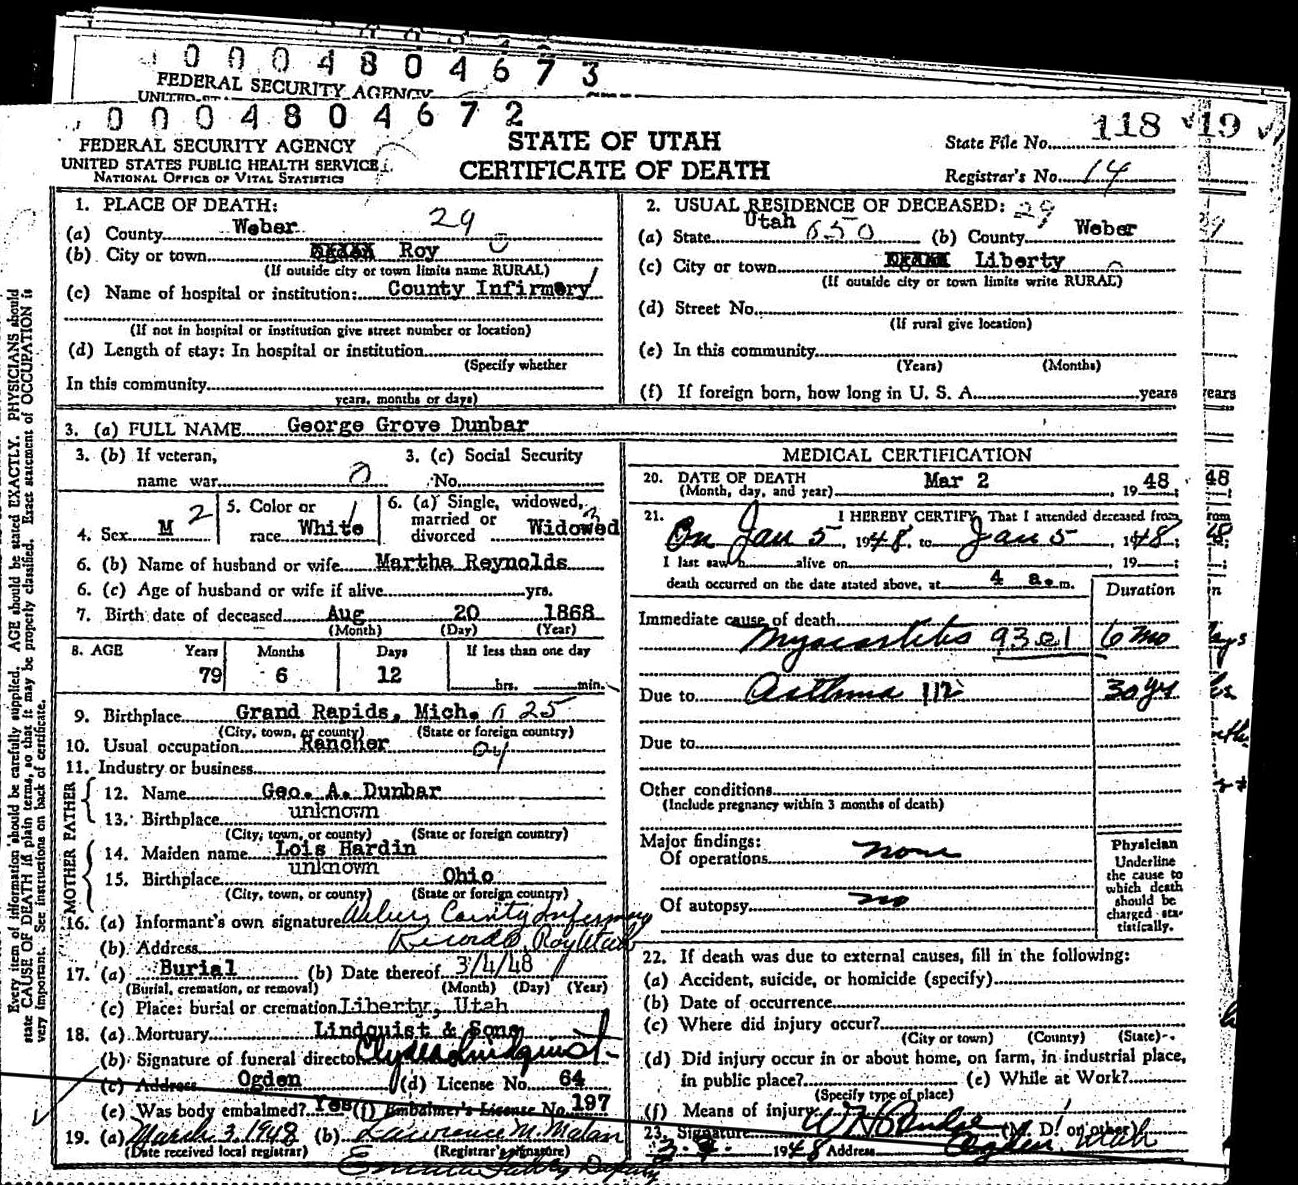 0004804673
FEDERAL SECURITY AGENCY
0004804672
FEDERAL SECURITY AGENCY
UNITED STATES PUBLIC HEALTH SERVICE
NATIONAL OFFICE OF VITAL STATISTICS
STATE OF UTAH
CERTIFICATE OF DEATH
State File No. 118 19
Registrar's No. 14
Every item of information should be carefully supplied. AGE should be stated EXACTLY. PHYSICIANS should
state CAUSE OF DEATH in plain terms, so that it may be properly classified. Exact statement of OCCUPATION is
very important. See instructions on back of certificate.
1. PLACE OF DEATH:
(a) County Weber 29
(b) City or town Roy
(If outside city or town limits name RURAL)
(c) Name of hospital or institution: County Infirmery
(If not in hospital or institution give street number or location)
(d) Length of stay: In hospital or institution
(Specify whether
In this community
years, months or days)
2. USUAL RESIDENCE OF DECEASED: 29
(a) State Utah 650 (b) County Weber
(c) City or town Liberty
(If outside city or town limits write RURAL)
(d) Street No.
(If rural give location)
(e) In this community
(Years) (Months)
(f) If foreign born, how long in U. S. A. years
3. (a) FULL NAME George Grove Dunbar
3. (b) If veteran, 3. (c) Social Security
name war 0 No.
4. Sex M 2
5. Color or race White 1
6. (a) Single, widowed, married or divorced Widowed 3
6. (b) Name of husband or wife Martha Reynolds
6. (c) Age of husband or wife if alive yrs.
7. Birth date of deceased Aug 20 1868
(Month) (Day) (Year)
8. AGE Years Months Days If less than one day
79 6 12 hrs. min.
9. Birthplace Grand Rapids, Mich. 625
(City, town, or county) (State or foreign country)
10. Usual occupation Rancher 04
11. Industry or business
FATHER
12. Name Geo. A. Dunbar
13. Birthplace unknown
(City, town, or county) (State or foreign country)
MOTHER
14. Maiden name Lois Hardin
15. Birthplace unknown Ohio
(City, town, or county) (State or foreign country)
16. (a) Informant's own signature County Infirmary
(b) Address Records, Roy Utah
17. (a) Burial (b) Date thereof 3/4/48
(Burial, cremation, or removal) (Month) (Day) (Year)
(c) Place: burial or cremation Liberty, Utah
18. (a) Mortuary Lindquist & Sons
(b) Signature of funeral director Clyde Lindquist
(c) Address Ogden (d) License No. 64
(e) Was body embalmed? Yes (f) Embalmer's License No. 197
19. (a) March 3, 1948 (b) Lawrence M. Malan
(Date received local registrar) (Registrar's signature)
Deputy
MEDICAL CERTIFICATION
20. DATE OF DEATH Mar 2, 1948;
(Month, day, and year)
21. I HEREBY CERTIFY, That I attended deceased from
On Jan 5, 1948, to Jan 5, 1948;
I last saw h alive on , 19 ;
death occurred on the date stated above, at 4 a.m.
Duration
Immediate cause of death
Myocarditis 93 e 1 6 mo
Due to Asthma 112 30 yr
Due to
Other conditions
(Include pregnancy within 3 months of death)
Major findings:
Of operations none
Of autopsy no
Physician
Underline
the cause to
which death
should be
charged sta-
tistically.
22. If death was due to external causes, fill in the following:
(a) Accident, suicide, or homicide (specify)
(b) Date of occurrence
(c) Where did injury occur?
(City or town) (County) (State)
(d) Did injury occur in or about home, on farm, in industrial place,
in public place? (e) While at Work?
(Specify type of place)
(f) Means of injury
23. Signature (M. D. or other)
1948 Address Ogden, Utah